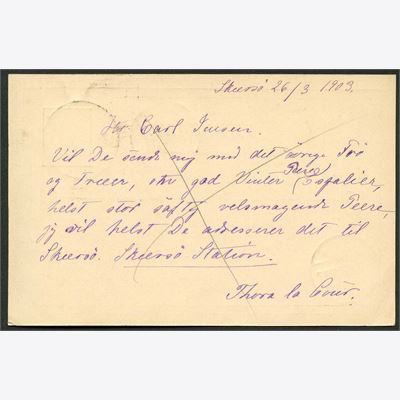 Skærsö 26/3 1903.
Hr Carl Jensen.
Vil De sende mig med det övrige Frö
og Træer, en god Vinter Pære Espalier,
helst stor saftig velsmagende Pære,
jeg vil helst De adresserer det til
Skærsö. Skærsö Station.
Thora la Cour.